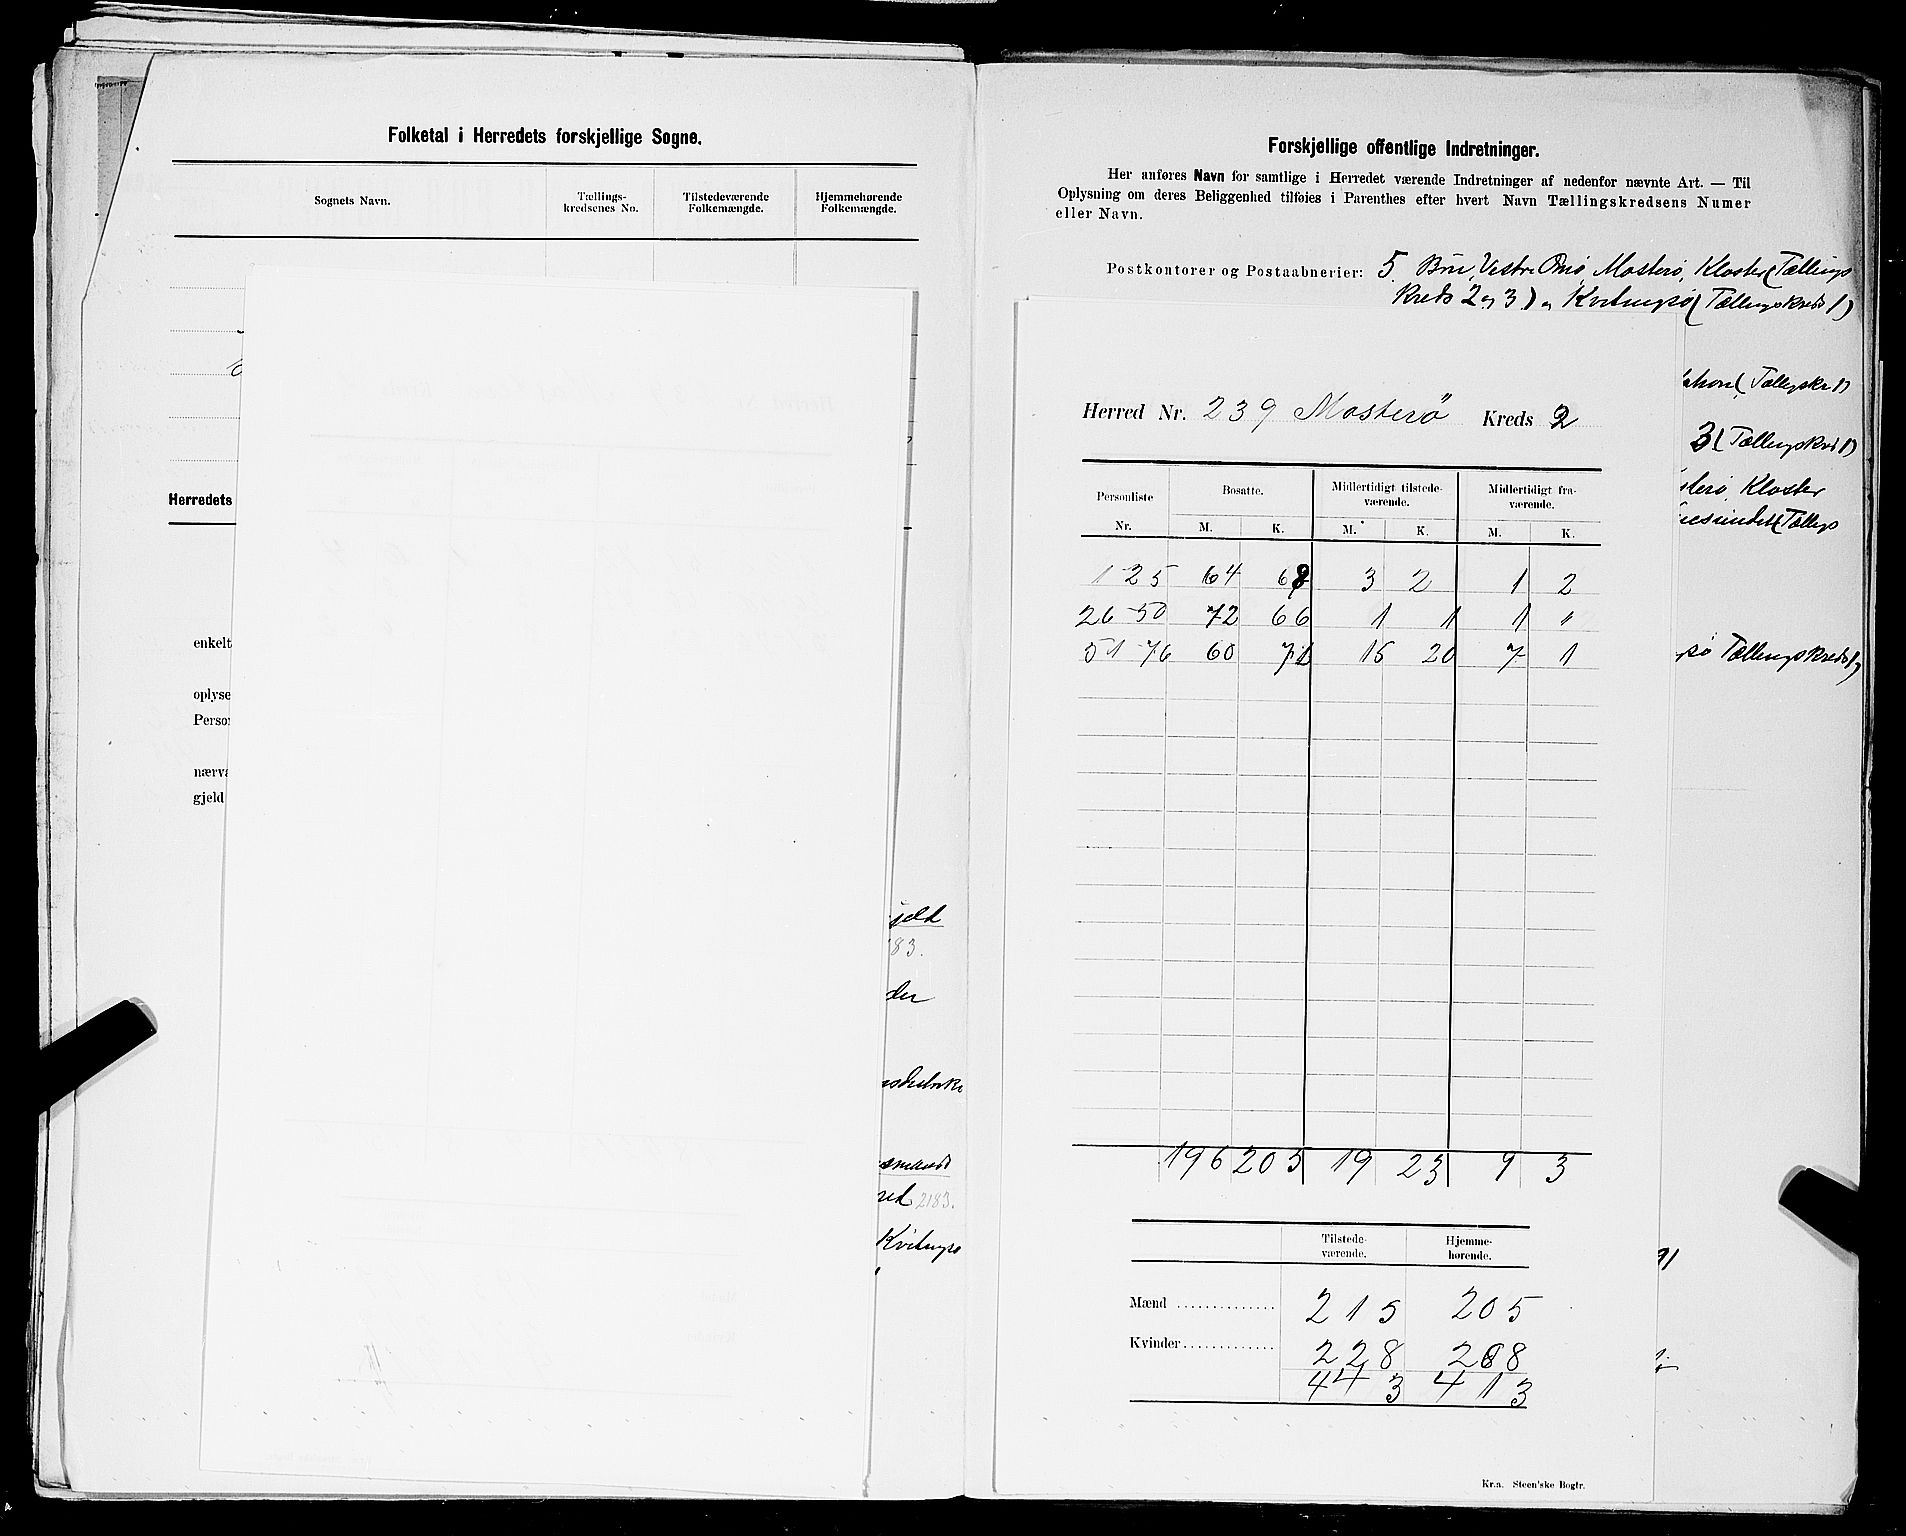 Folketal i Herredets forskjellige Sogne.
Sognets Navn. Tællings-kredsenes No. Tilstedeværende Folkemængde. Hjemmehørende Folkemængde.
Herredets
enkelt
oplyse
Person
nærvæ
gjeld
jeld
83.
der
red 2183.
Kvitingsø
Forskjellige offentlige Indretninger.
Her anføres Navn for samtlige i Herredet værende Indretninger af nedenfor nævnte Art. — Til
Oplysning om deres Beliggenhed tilføies i Parenthes efter hvert Navn Tællingskredsens Numer
eller Navn.
Postkontorer og Postaabnerier: 5 Bru, Vestre Omø, Mosterø, Kloster (Tællings
Kreds 2 og 3) og Kvitingsø (Tællingskreds 1)
(Tællingskr 1)
3 (Tællingskreds 1)
sterø, Kloster
sundet (Tællings
sø Tællingskreds 1)
Herred Nr. 239 Mosterø Kreds 2
Personliste Nr. Bosatte. Midlertidigt tilstede-værende. Midlertidigt fra-værende.
M. K. M. K. M. K.
1-25 64 68 3 2 1 2
26-50 72 66 1 1 1 "
51-76 60 71 15 20 7 1
196 205 19 23 9 3
Tilstede-værende. Hjemme-hørende.
Mænd .............. 215 205
Kvinder ............. 228 208
443 413
Kr.a. Steen'ske Bogtr.